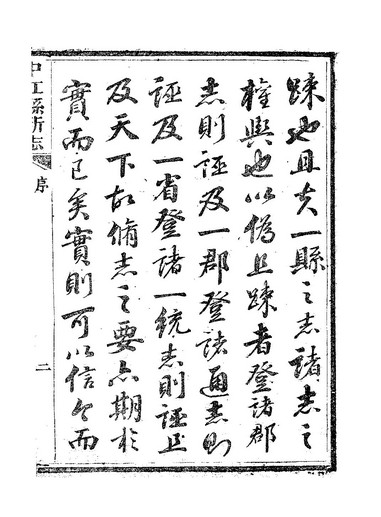 踈也且夫一縣之志諸志之
權輿也以偽且踈者登諸郡
志則誣及一郡登諸通志則
誣及一省登諸一統志則誣且
及天下故脩志之要亦期於
實而已矣實則可以信今而
中江縣新志
序
二